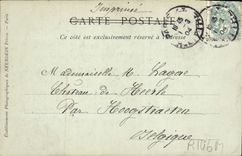 Imprimé
CARTE POSTALE
Ce côté est exclusivement réservé à l'adresse
Mademoiselle H.
Château de Heerle
Par Hoogstraeten
Belgique
Établissements Photographiques de NEURDEIN Frères — Paris